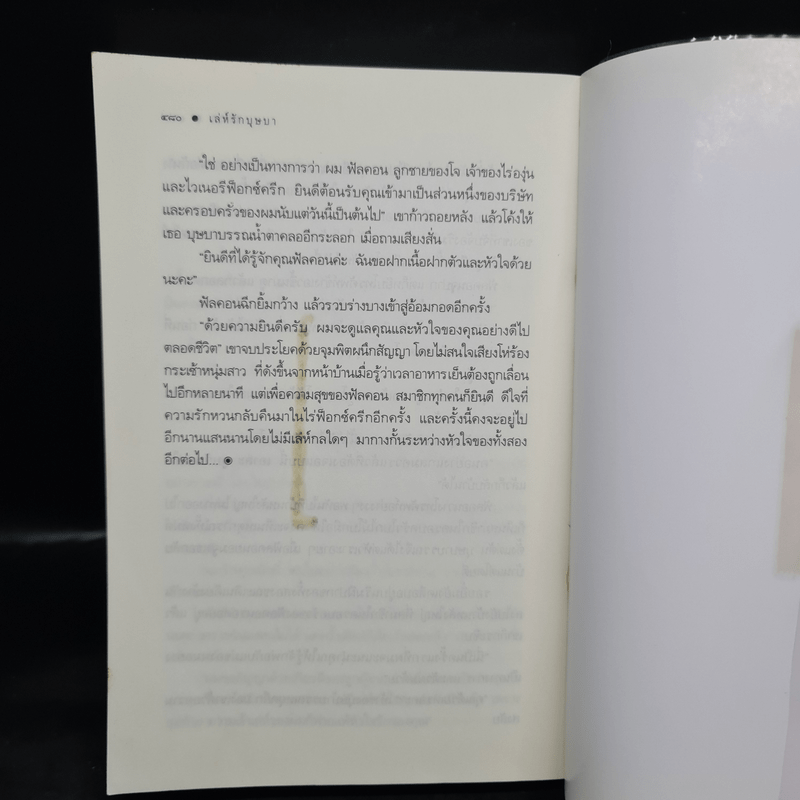 ๔๘๐ ● เล่ห์รักบุษบา
"ใช่ อย่างเป็นทางการว่า ผม ฟัลคอน ลูกชายของโจ เจ้าของไร่องุ่น
และไวเนอรีฟ็อกซ์ครีก ยินดีต้อนรับคุณเข้ามาเป็นส่วนหนึ่งของบริษัท
และครอบครัวของผมนับแต่วันนี้เป็นต้นไป" เขาก้าวถอยหลัง แล้วโค้งให้
เธอ บุษบาบรรณน้ำตาคลออีกระลอก เมื่อถามเสียงสั่น
"ยินดีที่ได้รู้จักคุณฟัลคอนค่ะ ฉันขอฝากเนื้อฝากตัวและหัวใจด้วย
นะคะ"
ฟัลคอนฉีกยิ้มกว้าง แล้วรวบร่างบางเข้าสู่อ้อมกอดอีกครั้ง
"ด้วยความยินดีครับ ผมจะดูแลคุณและหัวใจของคุณอย่างดีไป
ตลอดชีวิต" เขาจบประโยคด้วยจุมพิตผนึกสัญญา โดยไม่สนใจเสียงโห่ร้อง
กระเซ้าหนุ่มสาว ที่ดังขึ้นจากหน้าบ้านเมื่อรู้ว่าเวลาอาหารเย็นต้องถูกเลื่อน
ไปอีกหลายนาที แต่เพื่อความสุขของฟัลคอน สมาชิกทุกคนก็ยินดี ดีใจที่
ความรักหวนกลับคืนมาในไร่ฟ็อกซ์ครีกอีกครั้ง และครั้งนี้คงจะอยู่ไป
อีกนานแสนนานโดยไม่มีเล่ห์กลใดๆ มากางกั้นระหว่างหัวใจของทั้งสอง
อีกต่อไป... ◉